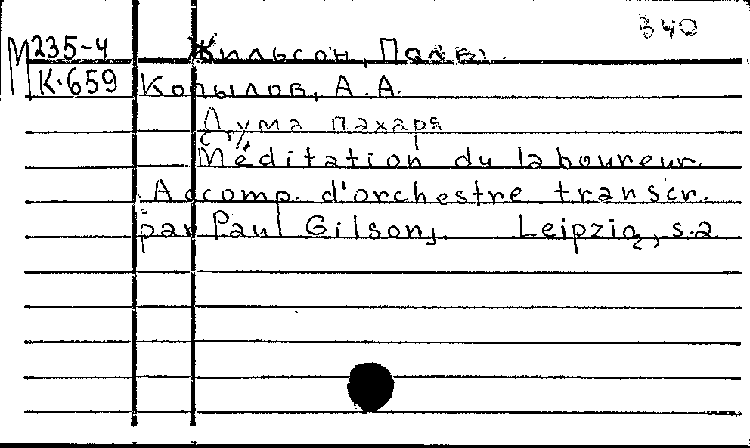 340
М 235-4 Жильсон, Поль
К-659 Копылов, А.А.
Дума пахаря
Méditation du laboureur.
Accomp. d'orchestre transcr.
par Paul Gilson,. Leipzig, s.a